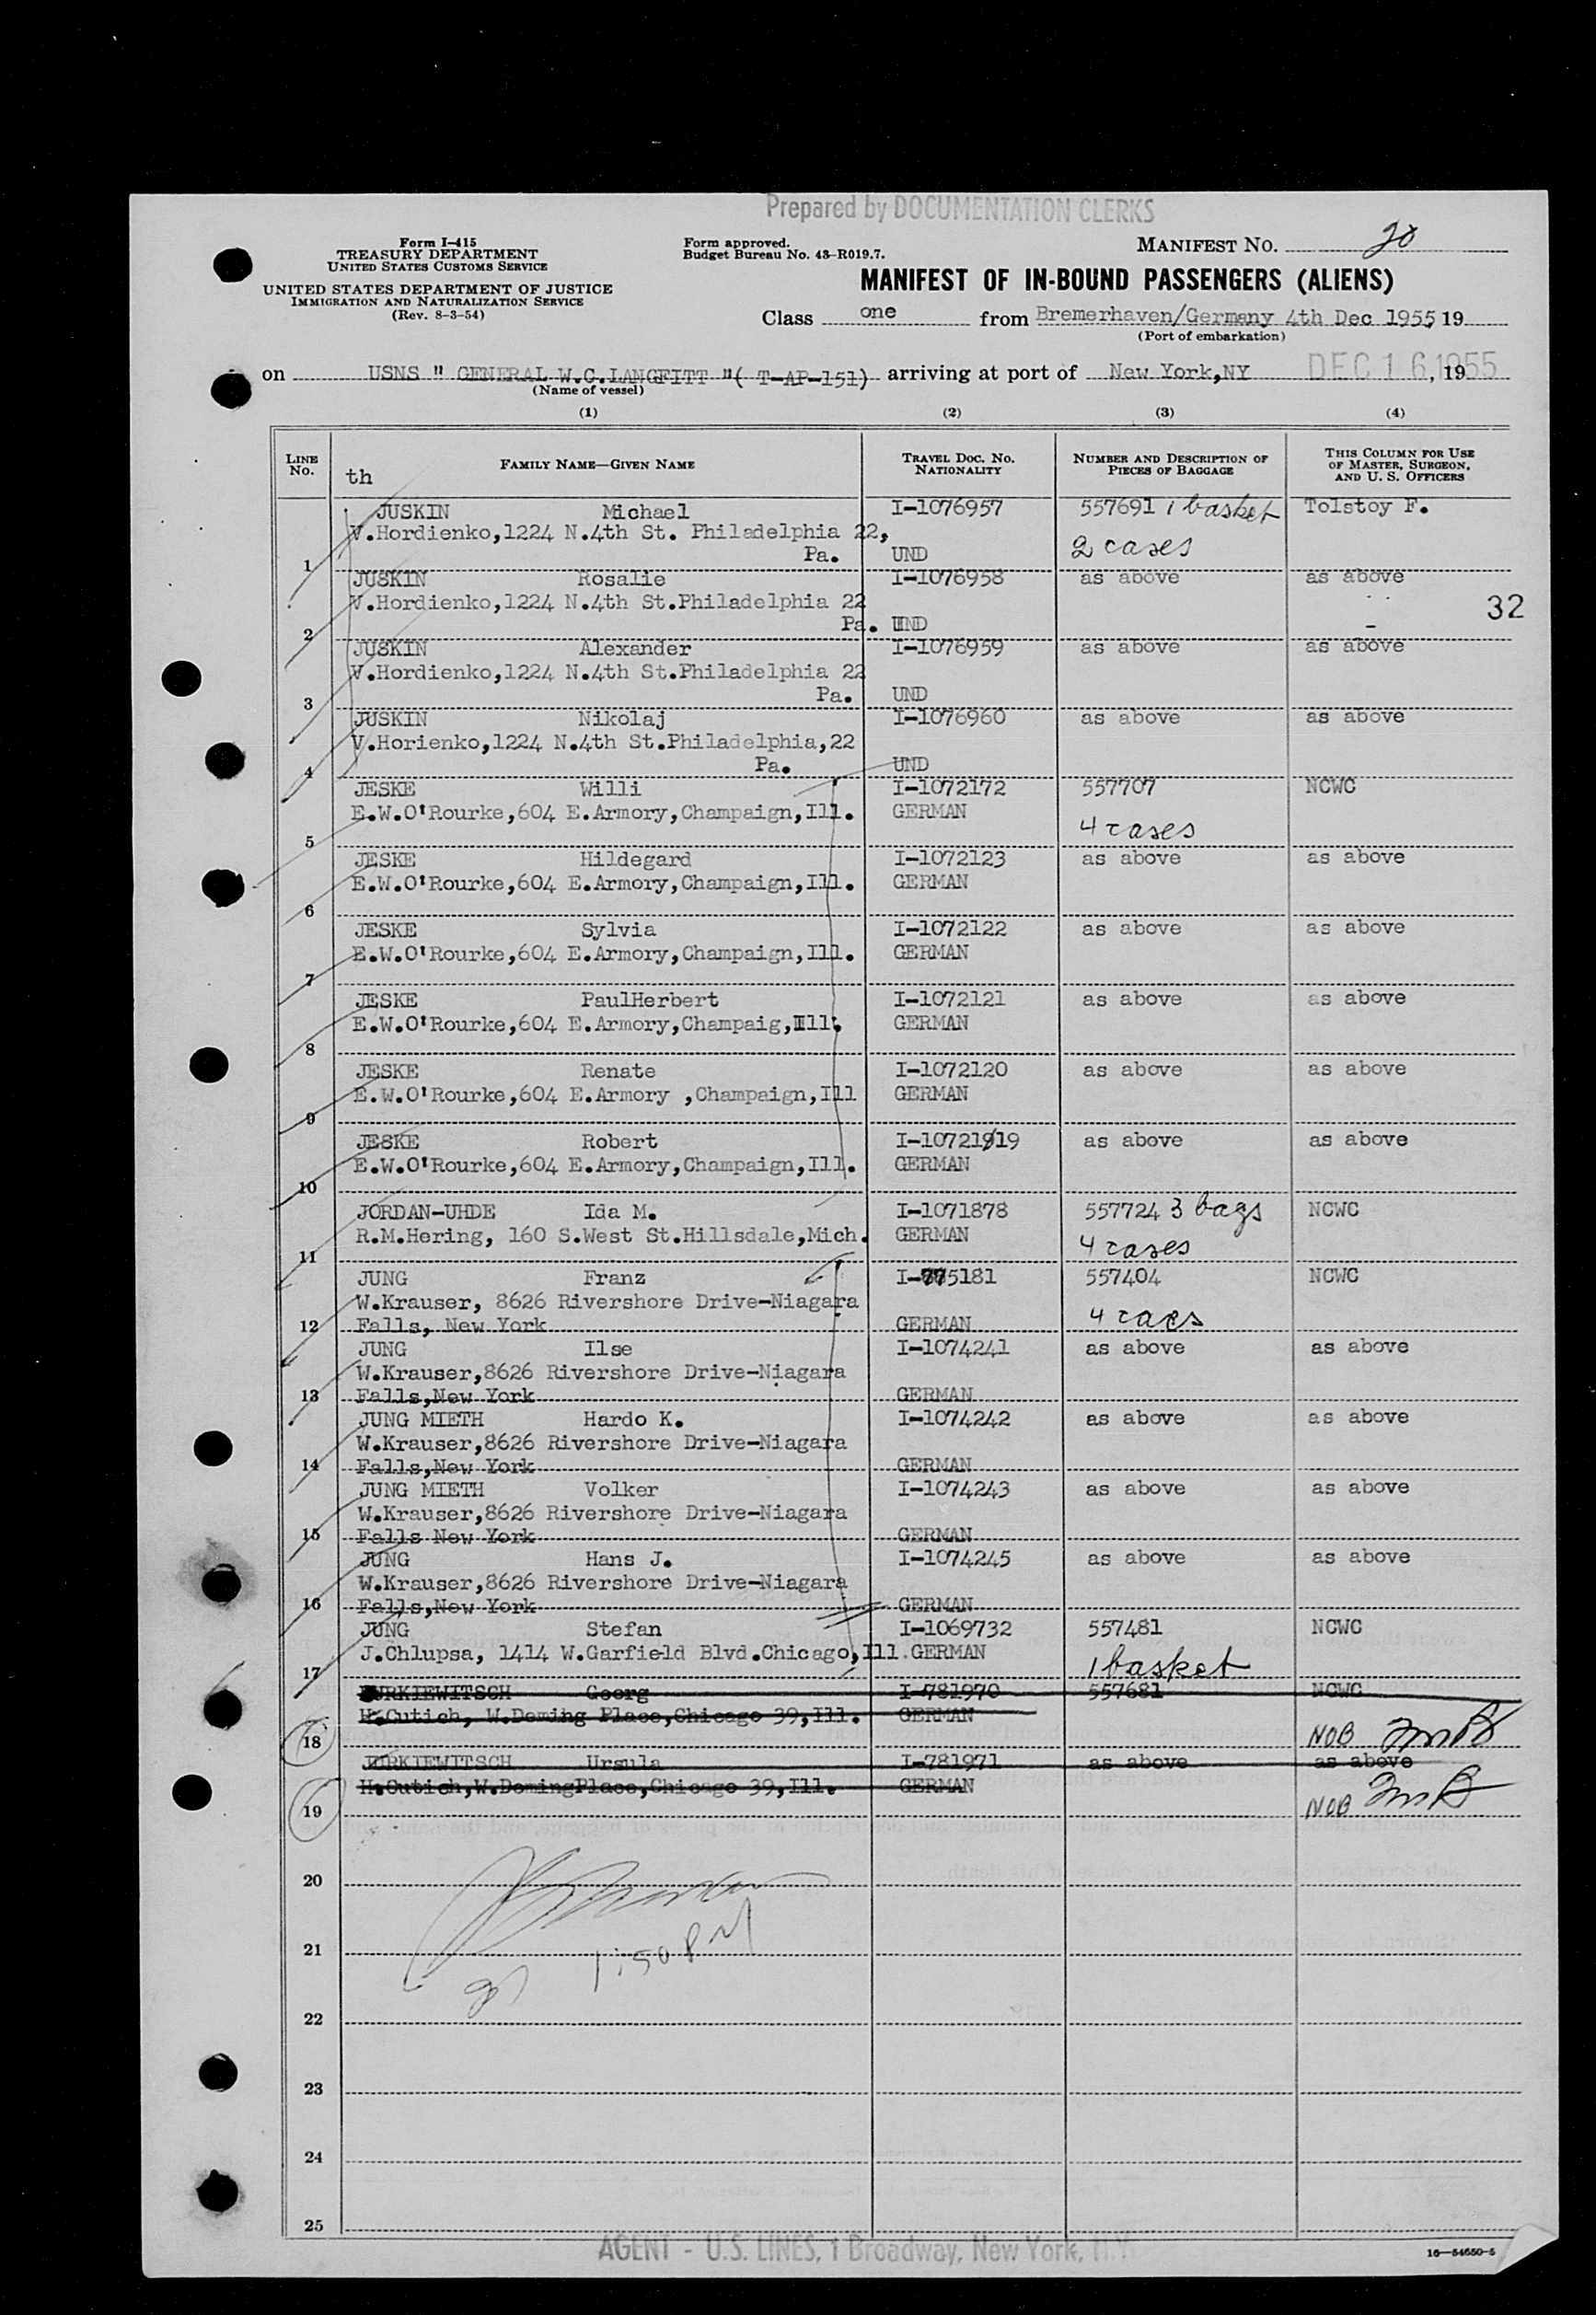 Prepared by DOCUMENTATION CLERKS
Form I-415
TREASURY DEPARTMENT
UNITED STATES CUSTOMS SERVICE
UNITED STATES DEPARTMENT OF JUSTICE
IMMIGRATION AND NATURALIZATION SERVICE
(Rev. 8-3-54)
Form approved.
Budget Bureau No. 43-R019.7.
MANIFEST NO. 20
MANIFEST OF IN-BOUND PASSENGERS (ALIENS)
Class one from Bremerhaven/Germany 4th Dec 1955 19
(Port of embarkation)
on USNS " GENERAL W.C.LANGFITT "( T-AP-151) arriving at port of New York,NY DEC 16 1955, 19
(Name of vessel)
(1) (2) (3) (4)
LINE NO. th FAMILY NAME—GIVEN NAME TRAVEL DOC. NO. NATIONALITY NUMBER AND DESCRIPTION OF PIECES OF BAGGAGE THIS COLUMN FOR USE OF MASTER, SURGEON, AND U. S. OFFICERS
JUSKIN Michael I-1076957 557691 1 basket Tolstoy F.
V.Hordienko,1224 N.4th St. Philadelphia 22,
1 Pa. UND 2 cases
JUSKIN Rosalie I-1076958 as above as above
V.Hordienko,1224 N.4th St.Philadelphia 22 32
2 Pa. UND
JUSKIN Alexander I-1076959 as above as above
V.Hordienko,1224 N.4th St.Philadelphia 22
3 Pa. UND
JUSKIN Nikolaj I-1076960 as above as above
V.Horienko,1224 N.4th St.Philadelphia,22
4 Pa. UND
JESKE Willi I-1072172 557707 NCWC
E.W.O'Rourke,604 E.Armory,Champaign,Ill. GERMAN
5 4 cases
JESKE Hildegard I-1072123 as above as above
E.W.O'Rourke,604 E.Armory,Champaign,Ill. GERMAN
6
JESKE Sylvia I-1072122 as above as above
E.W.O'Rourke,604 E.Armory,Champaign,Ill. GERMAN
7
JESKE PaulHerbert I-1072121 as above as above
E.W.O'Rourke,604 E.Armory,Champaig,Ill. GERMAN
8
JESKE Renate I-1072120 as above as above
E.W.O'Rourke,604 E.Armory ,Champaign,Ill GERMAN
9
JESKE Robert I-10721919 as above as above
E.W.O'Rourke,604 E.Armory,Champaign,Ill. GERMAN
10
JORDAN-UHDE Ida M. I-1071878 557724 3 bags NCWC
R.M.Hering, 160 S.West St.Hillsdale,Mich. GERMAN
11 4 cases
JUNG Franz I-775181 557404 NCWC
W.Krauser, 8626 Rivershore Drive-Niagara
12 Falls, New York GERMAN 4 caes
JUNG Ilse I-1074241 as above as above
W.Krauser,8626 Rivershore Drive-Niagara
13 Falls,New York GERMAN
JUNG MIETH Hardo K. I-1074242 as above as above
W.Krauser,8626 Rivershore Drive-Niagara
14 Falls,New York GERMAN
JUNG MIETH Volker I-1074243 as above as above
W.Krauser,8626 Rivershore Drive-Niagara
15 Falls New York GERMAN
JUNG Hans J. I-1074245 as above as above
W.Krauser,8626 Rivershore Drive-Niagara
16 Falls,New York GERMAN
JUNG Stefan I-1069732 557481 NCWC
J.Chlupsa, 1414 W.Garfield Blvd.Chicago,Ill. GERMAN
17 1 basket
JURKIEWITSCH Georg I-781970 557681 NCWC
H.Cutich, W.Deming Place,Chicago 39,Ill. GERMAN
18 NOB
JURKIEWITSCH Ursula I-781971 as above as above
H.Cutich,W.DemingPlace,Chicago 39,Ill. GERMAN
19 NOB
20
21 1:50 PM
22
23
24
25
AGENT - U.S. LINES, 1 Broadway, New York, N.Y.
16—54650-5